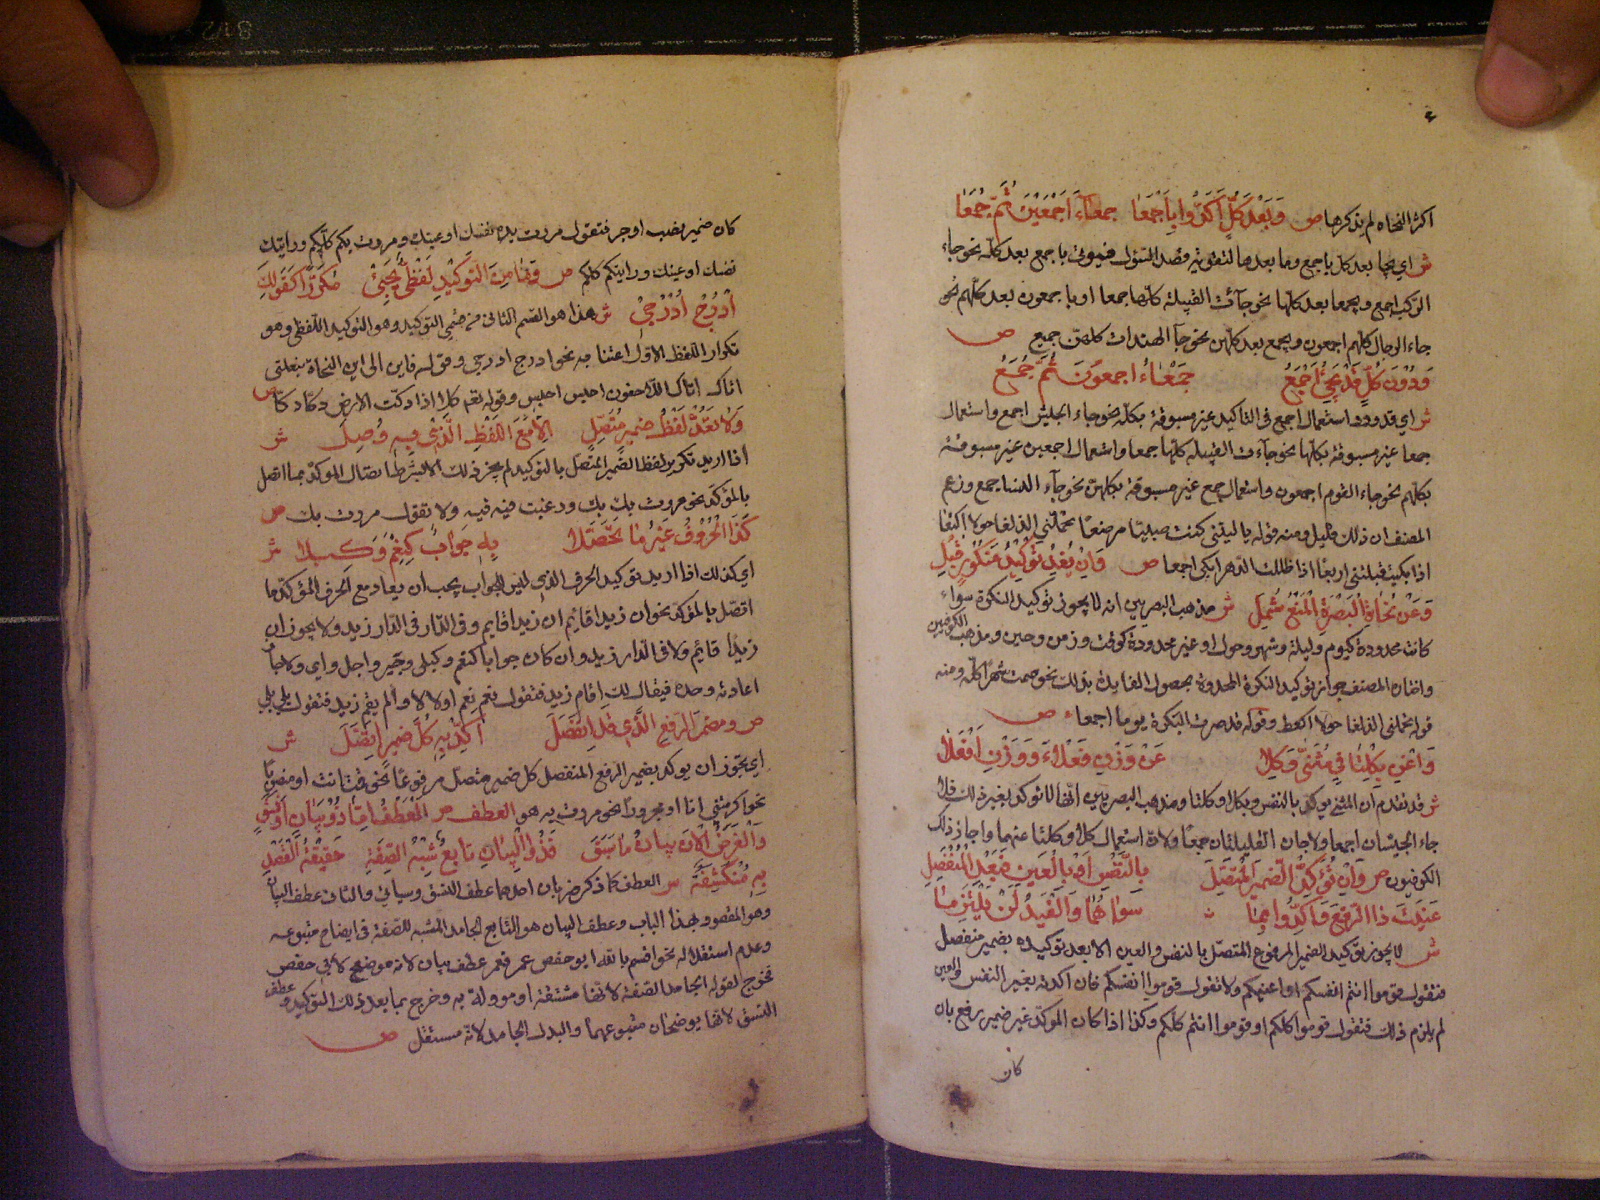 اكثر النحاه لم يذكرها ص وَبَعْدَ كُلٍّ أَكَّدُوا بِأَجْمَعَا جمعاءَ اَجْمَعِيْنَ ثُمَّ جُمَعَا
ش اي يجا بعد كل باجمع وما بعدها لتقويه قصد الشمول فيوتى باجمع بعد كله نحو جاء
الركب اجمع وبجمعا بعد كلها نحو جآئت القبيلة كلها جمعا او باجمعون بعد كلهم نحو
جاء الرجال كلهم اجمعون وبجمع بعد كلهن نحو جآ الهندات كلهن جمع ص
وَدُوْنَ كُلٍّ قَدْ يَجِئُ اَجْمَعُ جَمْعَاءُ اجمعُوْنَ ثُمَّ جُمَعُ
ش اي قد ورد استعمال اجمع في التاكيد غير مسبوقة بكله نحو جاء الجيش اجمع واستعمال
جمعا غير مسبوقة بكلها نحو جآءت القبيله كلها جمعا واستعمال اجمعين غير مسبوقة
بكلهم نحو جاء القوم اجمعون واستعمال جمع غير مسبوقة بكلهن نحو جآء النسا جمع وزعم
المصنف ان ذلك قليل ومنه قوله يا ليتني كنت صبيّا مرضعًا تحملني الذلفا حولا اكتعا
اذا بكيت قبلتني اربعًا اذا ظللت الدهر ابكي اجمعا ص وَاِنْ يُفِدْ تَوْكِيْدُ مَنْكُوْرٍ قُبِلْ
وَعَنْ نُحَاةِ الْبَصْرَةِ الْمَنْعُ شَمِلْ ش مذهب البصريين انه لا يجوز توكيد النكرة سواء
كانت محدودة كيوم وليلة وشهر وحول او غير محدودة كوقت وزمن وحين ومذهب الكوفيين
واختاره المصنف جواز توكيد النكرة المحدودة بحصول الفايدة بذلك نحو صمت شهرًا كله ومنه
قوله تحملني الذلفا حولا اكتعا وقوله قد صرت البكرة يوما اجمعا ص
وَاغْنَ بِكِلْتَا فِي مُثَنًّى وَكِلا عَنْ وَزْنِ فَعْلَاءَ وَوَزْنِ اَفْعَلَا
ش قد تقدم ان المثنى يوكد بالنفس وبكلا وكلتا ومذهب البصريين انها لا توكد بغير ذلك فلا
جاء الجيشان اجمعا ولا جان القبيلتان جمعا ولان استعمال كلا وكلتا عنهما واجاز ذلك
الكوفيون ص وَاِنْ تُؤَكِّدْ الضميرَ المُتَّصِلَ بِالنَّفْسِ اَوْ بِالْعَيْنِ فَبَعْدَ الْمُنْفَصِلِ
عَنَيْتُ ذَا الرَّفْعِ وَاَكَّدُوا بِمَا سِوَاهُمَا وَالْقَيْدُ لَنْ يُلْتَزَمَا
ش لا يجوز توكيد الضمير المرفوع المتصل بالنفس والعين الا بعد توكيده بضمير منفصل
فتقول قوموا انتم انفسكم او اعينكم ولا تقول قوموا انفسكم فان اكدته بغير النفس والعين
لم يلزم ذلك فتقول قوموا كلكم او قوموا انتم كلكم وكذا اذا كان الموكد غير ضمير رفع بان
كان
كان ضمير نصب او جر فتقول مررت بك نفسك او عينك ومررت بكم كلكم ورايتك
نفسك او عينك ورايتكم كلكم ص وَمَا مِنَ التَّوْكِيْدِ لَفْظِيٌّ يَجِيْ مُكَرَّرًا كَقَوْلِكَ
اُدْرُجْ اُدْرُجِيْ ش هذا هو القسم الثاني من قسمي التوكيد وهو التوكيد اللفظي وهو
تكرار اللفظ الاول اعتنا به نحو ادرجي ادرجي وقوله فاين الى اين النجاة ببغلتي
اتاك اتاك اللاحقون احبس احبس وقوله تعم كلا اذا دكت الارض دكا دكا ص
وَلَا تُعِدْ لَفْظَ ضميرٍ مُتَّصِلْ اِلَّا مَعَ اللَّفْظِ الَّذِيْ بِهِ وُصِلْ ش
اذا اريد تكرير لفظ الضمير المتصل بالتوكيد لم يجز ذلك الا بشرط اتصال الموكد بما اتصل
بالموكد نحو مررت بك بك ورغبت فيه فيه ولا تقول مررت بك ك ص
كَذَا الحُرُوْفُ غَيْرُ مَا تَحَصَّلَا بِهِ جَوابٌ كَنَعَمْ وَكَبلا ش
اي كذلك اذا اريد توكيد الحرف الذي ليس للجواب يجب ان يعاد مع الحرف المؤكد ما
اتصل بالمؤكد نحو ان زيدا قايم ان زيدا قايم وفي الدار في الدار زيد ولا يجوز ان
زيدًا قائم ولا في الدار زيد وان كان جوابا كنعم وكبلى وجير واجل واي ولا جاز
اعادته وحده فيقال لك اقام زيد فتقول نعم نعم او لا لا والم يقم زيد فتقول بلى بلى
ص ومضمرَ الرفع الَّذِي قَدِ انْفَصَلَ اَكِّدْ بِهِ كُلَّ ضَمِيرٍ اتَّصَلَ ش
اي يجوز ان يوكد بضمير الرفع المنفصل كل ضمير متصل مرفوعًا نحو قمت انت او منصوبًا
نحو اكرمتني انا او مجرورًا نحو مررت به هو العطف ص الْعَطْفُ اِمَّا ذُوْ بَيَانٍ اَوْ نَسَقْ
وَالْغَرَضُ الْآنَ بَيانُ مَا سَبَقَ فَذُو الْبَيَانِ تَابِعٌ شِبْهُ الصِّفَةِ حَقِيْقَةُ القَصْدِ
بِهِ مُنْكَشِفَةْ ش العطف كما ذكر ضربان احدهما عطف النسق وسياتي والثاني عطف البيان
وهو المقصود بهذا الباب وعطف البيان هو التابع الجامد المشبه للصفة في ايضاح متبوعه
وعدم استقلاله نحو اقسم بالله ابو حفص عمر فعمر عطف بيان لانه موضح لابي حفص
فخرج لقوله الجامد الصفة لانها مشتقة او موولة به وخرج بما بعد ذلك التوكيد وعطف
النسق لانها يوضحان متبوعهما والبدل الجامد لانه مستقل ص